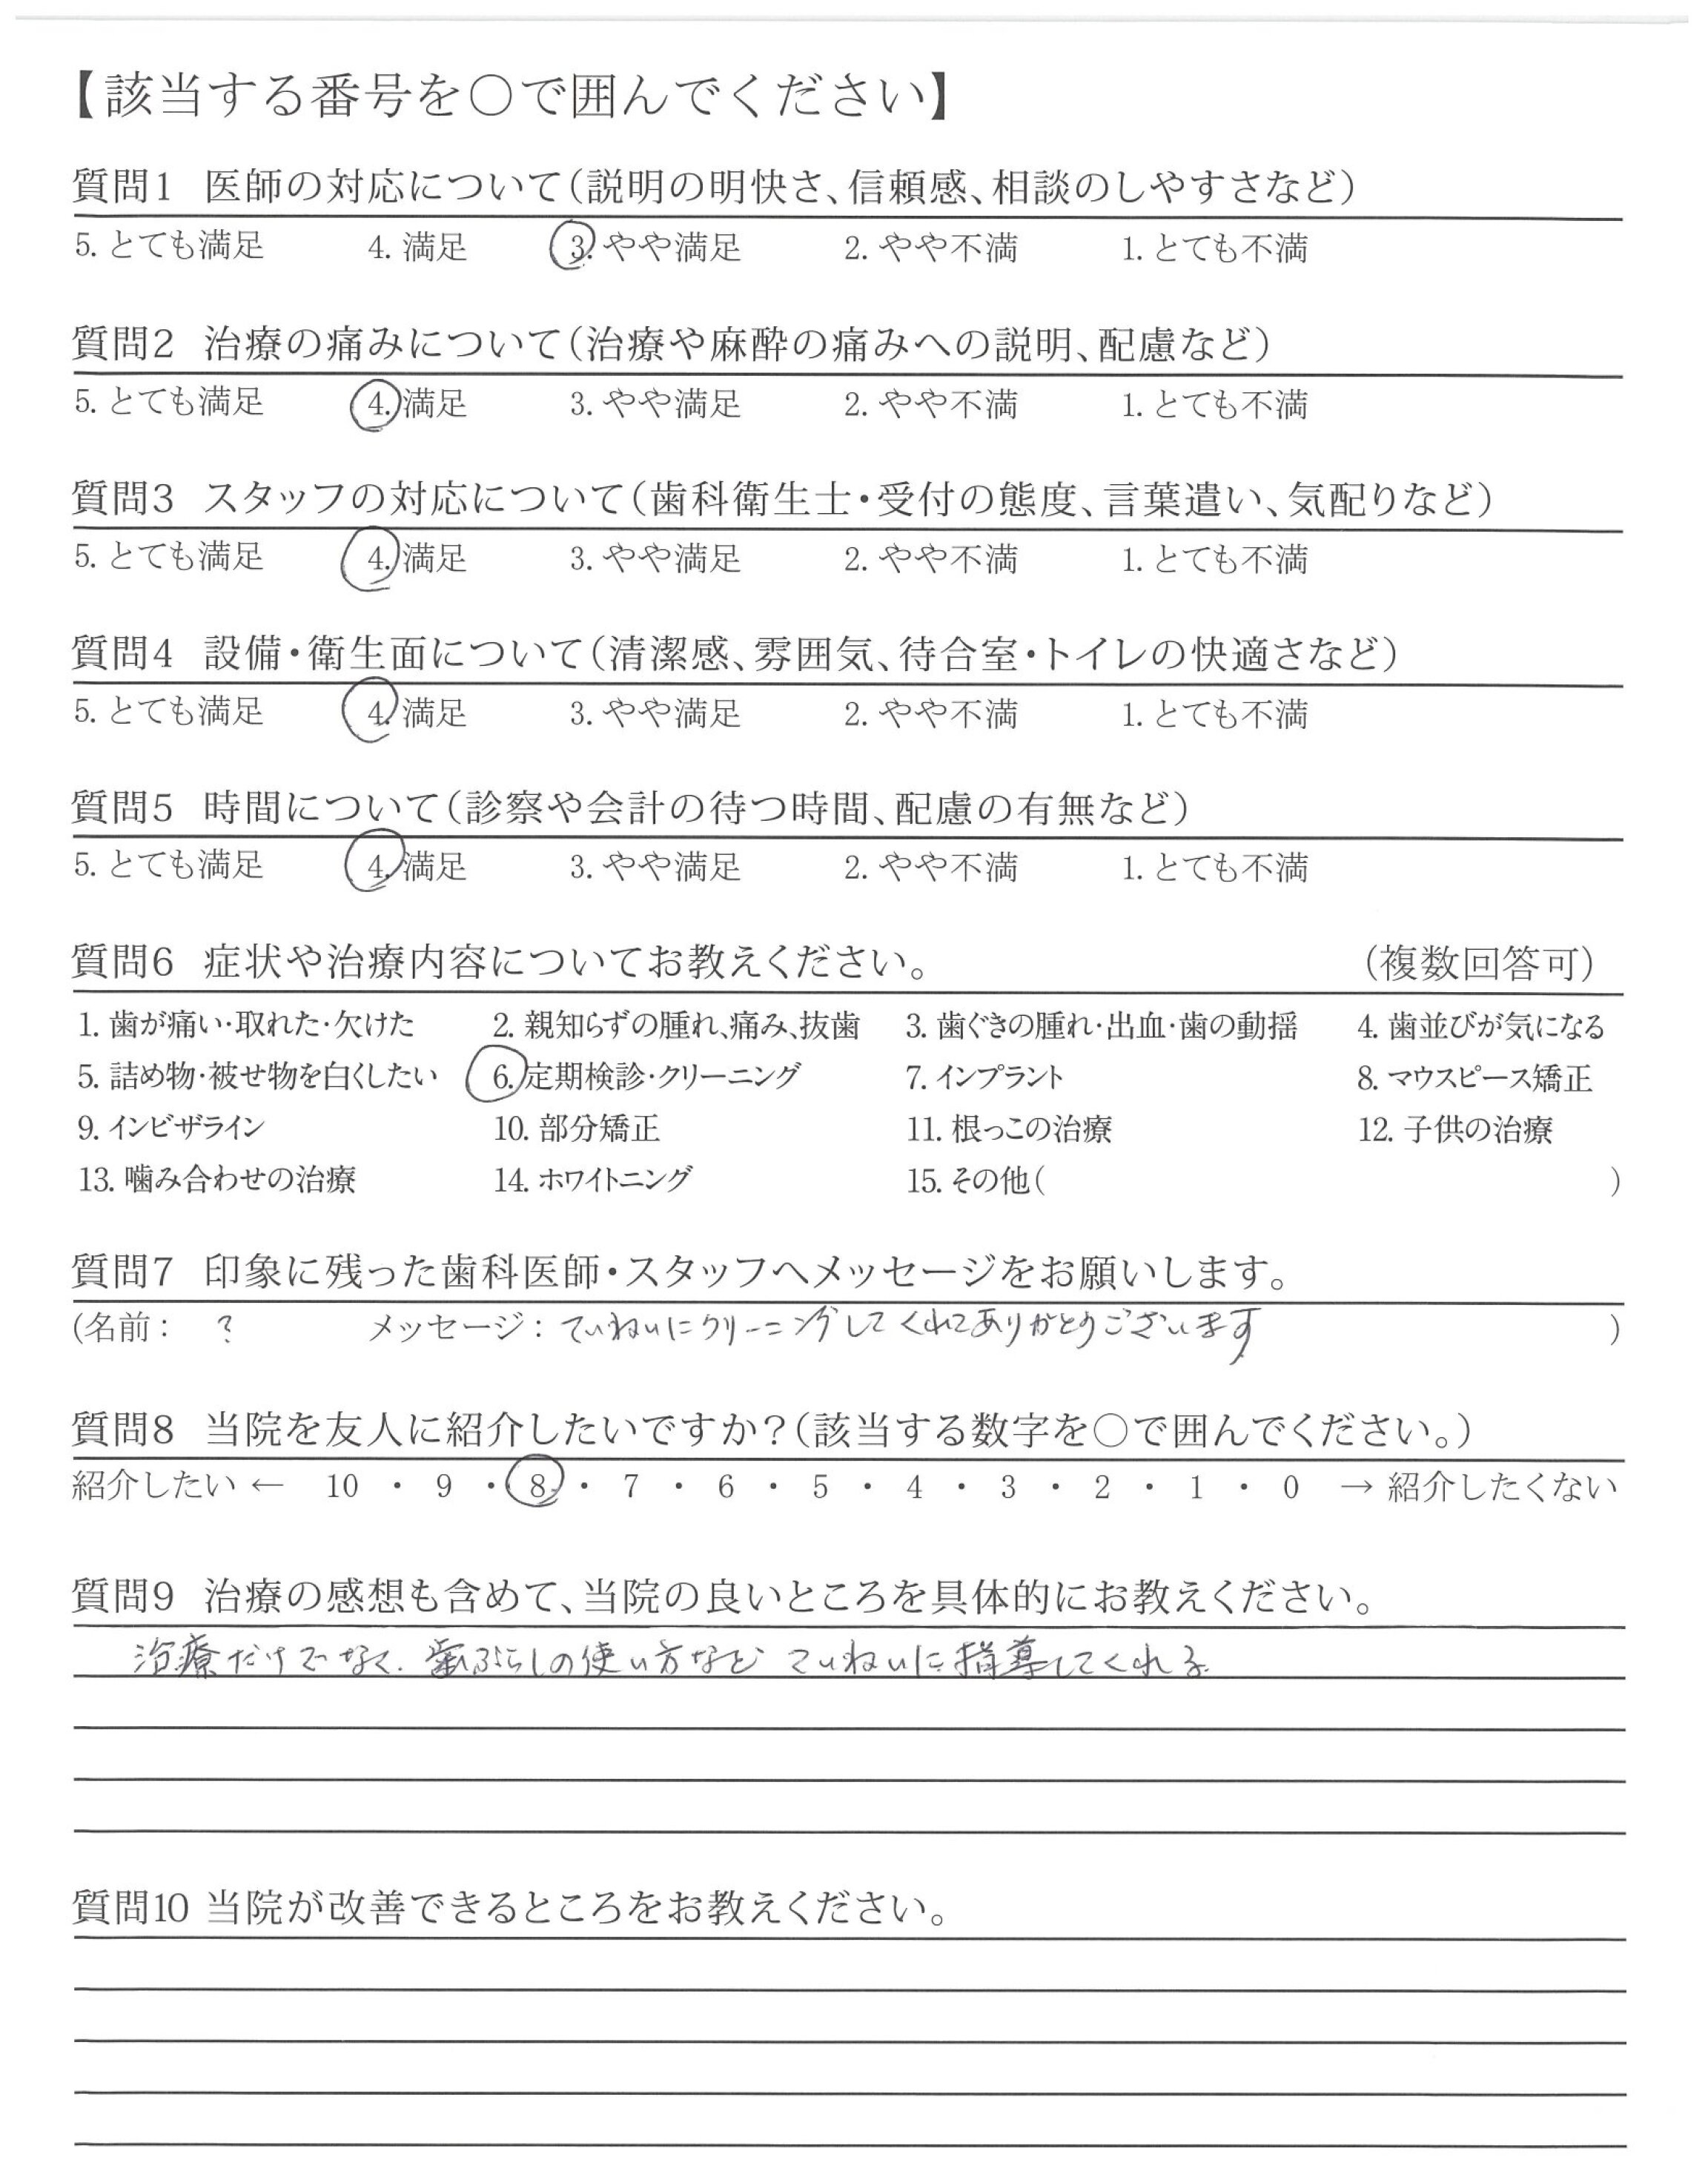 【該当する番号を○で囲んでください】
質問1 医師の対応について(説明の明快さ、信頼感、相談のしやすさなど)
5. とても満足 4. 満足 3. やや満足 2. やや不満 1. とても不満
質問2 治療の痛みについて(治療や麻酔の痛みへの説明、配慮など)
5. とても満足 4. 満足 3. やや満足 2. やや不満 1. とても不満
質問3 スタッフの対応について(歯科衛生士・受付の態度、言葉遣い、気配りなど)
5. とても満足 4. 満足 3. やや満足 2. やや不満 1. とても不満
質問4 設備・衛生面について(清潔感、雰囲気、待合室・トイレの快適さなど)
5. とても満足 4. 満足 3. やや満足 2. やや不満 1. とても不満
質問5 時間について(診察や会計の待つ時間、配慮の有無など)
5. とても満足 4. 満足 3. やや満足 2. やや不満 1. とても不満
質問6 症状や治療内容についてお教えください。 (複数回答可)
1. 歯が痛い・取れた・欠けた 2. 親知らずの腫れ、痛み、抜歯 3. 歯ぐきの腫れ・出血・歯の動揺 4. 歯並びが気になる
5. 詰め物・被せ物を白くしたい 6. 定期検診・クリーニング 7. インプラント 8. マウスピース矯正
9. インビザライン 10. 部分矯正 11. 根っこの治療 12. 子供の治療
13. 噛み合わせの治療 14. ホワイトニング 15. その他( )
質問7 印象に残った歯科医師・スタッフへメッセージをお願いします。
(名前: ? メッセージ: ていねいにクリーニングしてくれてありがとうございます )
質問8 当院を友人に紹介したいですか?(該当する数字を○で囲んでください。)
紹介したい ← 10 ・ 9 ・ 8 ・ 7 ・ 6 ・ 5 ・ 4 ・ 3 ・ 2 ・ 1 ・ 0 → 紹介したくない
質問9 治療の感想も含めて、当院の良いところを具体的にお教えください。
治療だけでなく、歯ぶらしの使い方など ていねいに指導してくれる
質問10 当院が改善できるところをお教えください。